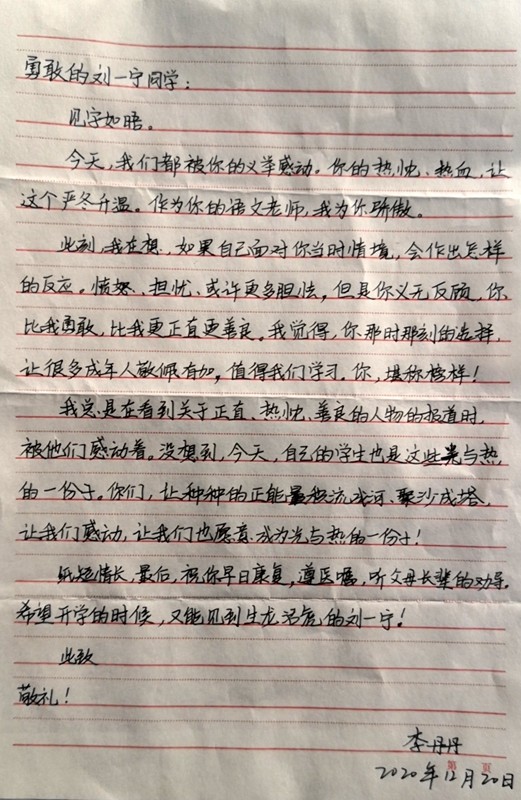 勇敢的刘一宁同学：
见字如晤。
今天，我们都被你的义举感动。你的热忱、热血，让
这个严冬升温。作为你的语文老师，我为你骄傲。
此刻，我在想，如果自己面对你当时情境，会作出怎样
的反应。愤怒、担忧、或许更多胆怯，但是你义无反顾，你
比我勇敢，比我更正直更善良。我觉得，你那时那刻的选择，
让很多成年人敬佩有加，值得我们学习。你，堪称榜样！
我总是在看到关于正直、热忱、善良的人物的报道时，
被他们感动着。没想到，今天，自己的学生也是这些光与热
的一份子。你们，让种种的正能量积流成河、聚沙成塔，
让我们感动，让我们也愿意成为光与热的一份子！
纸短情长，最后，祝你早日康复，遵医嘱，听父母长辈的劝导。
希望开学的时候，又能见到生龙活虎的刘一宁！
此致
敬礼！
李丹丹
第 页
2020年12月20日